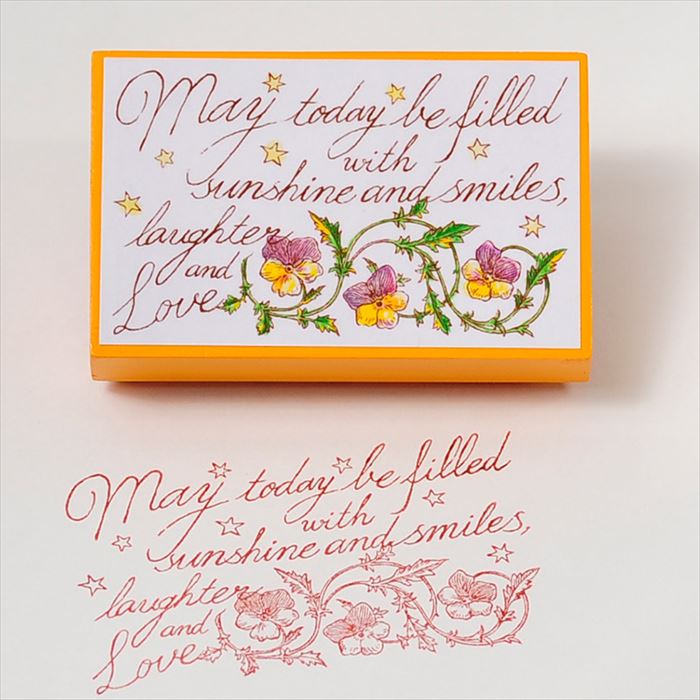 May today be filled
with
sunshine and smiles,
laughter
and
Love
May today be filled
with
sunshine and smiles,
laughter
and
Love